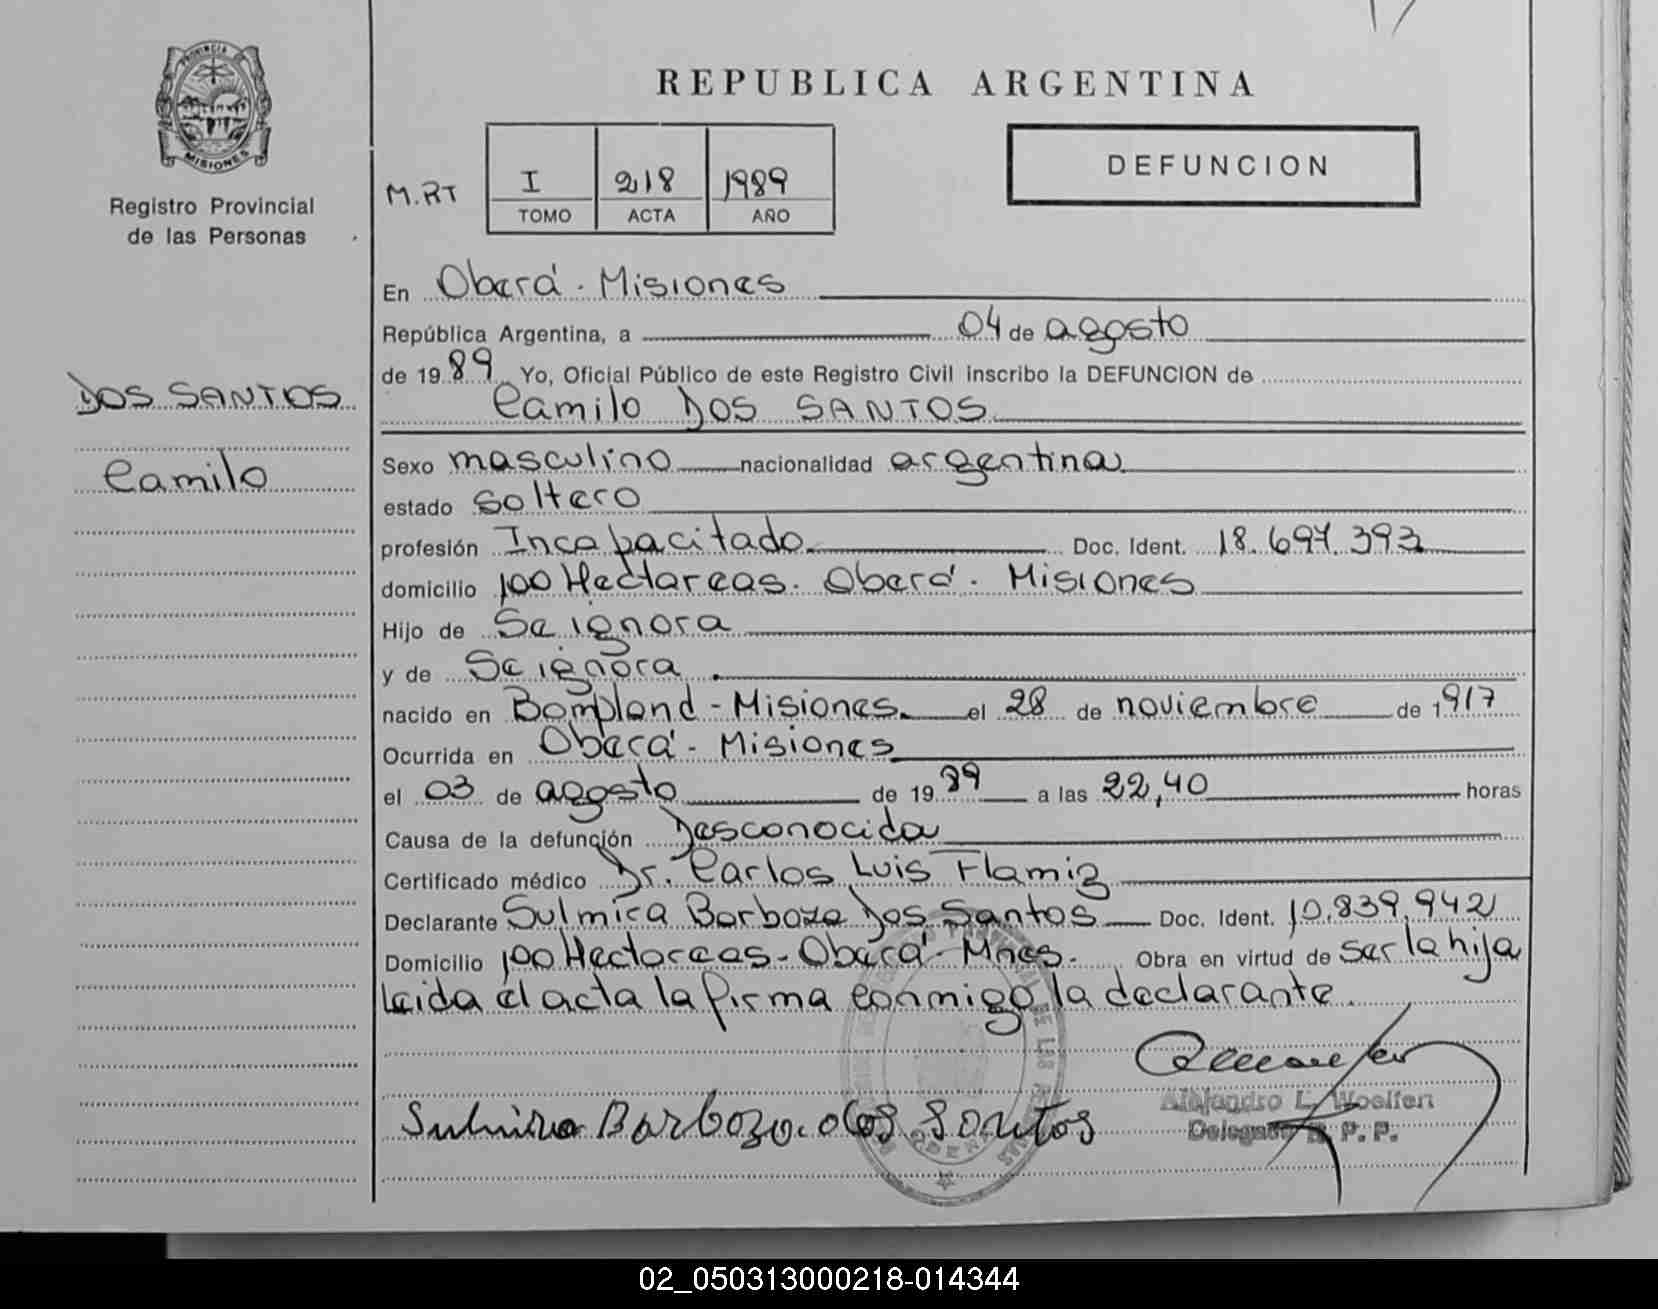 REPUBLICA ARGENTINA
PROVINCIA
MISIONES
Registro Provincial
de las Personas
M.RT
I
218
1989
TOMO
ACTA
AÑO
DEFUNCION
DOS SANTOS
Camilo
En Oberá - Misiones
República Argentina, a 04 de agosto
de 1989 Yo, Oficial Público de este Registro Civil inscribo la DEFUNCION de
Camilo DOS SANTOS
Sexo masculino nacionalidad argentina
estado soltero
profesión Incapacitado Doc. Ident. 18.697.393
domicilio 100 Hectareas. Oberá - Misiones
Hijo de Se ignora
y de Se ignora
nacido en Bompland - Misiones el 28 de noviembre de 1917
Ocurrida en Oberá - Misiones
el 03 de agosto de 1989 a las 22,40 horas
Causa de la defunción Desconocida
Certificado médico Dr. Carlos Luis Flamiz
Declarante Sulmira Barboza Dos Santos Doc. Ident. 10.839.942
Domicilio 100 Hectareas - Oberá - Mnes. Obra en virtud de ser la hija
Leida el acta la firma conmigo la declarante.
Sulmira Barbozo. dos Santos
Alejandro L. Woelfert
Delegado R. P. P.
02_050313000218-014344